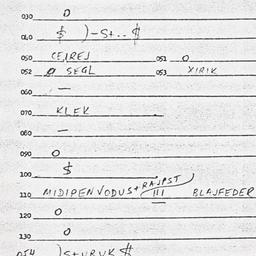 030 0
040 $ )-St.. $
050 CEJREJ 051 0
052 0 SEGL 053 XIRIK
060 —
070 KLEK
080 —
090 0
100 $
110 MIDIPENVODUS+RAJPST III BLAJFEDER
120 0
130 0
054 )S+URUK $